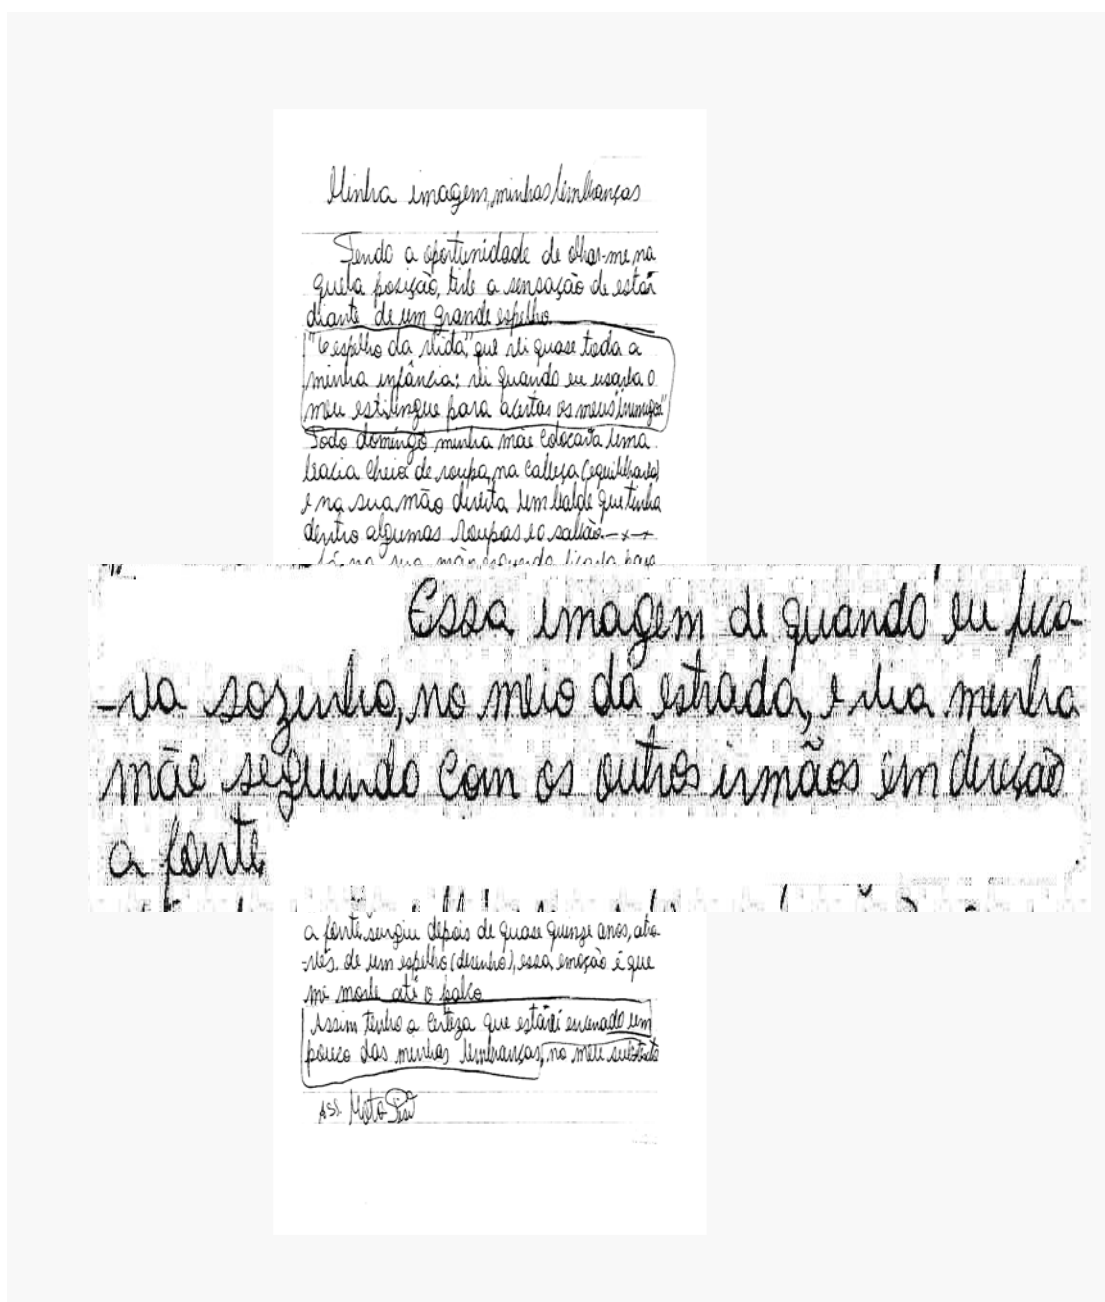 Minha imagem, minhas lembranças
Tendo a oportunidade de olhar-me na
quela posição, tive a sensação de estar
diante de um grande espelho.
"O espelho da vida," que vi quase toda a
minha infância; vi quando eu usava o
meu estilingue para acertar os meus "inimigos"
Todo domingo minha mãe colocava uma
bacia cheia de roupa, na cabeça (equilibrada)
e na sua mão direita um balde que tinha
dentro algumas roupas e o sabão -x-x
Só na sua mão esquerda ficava para
Essa imagem de quando eu fica-
-va sozinho, no meio da estrada, e via minha
mãe seguindo com os outros irmãos em direção
a fonte
a fonte, surgiu depois de quase quinze anos, atra-
-vés de um espelho (desenho), essa emoção é que
me move até o palco
Assim tenho a certeza que estarei encenado um
pouco das minhas lembranças, no meu
Ass.